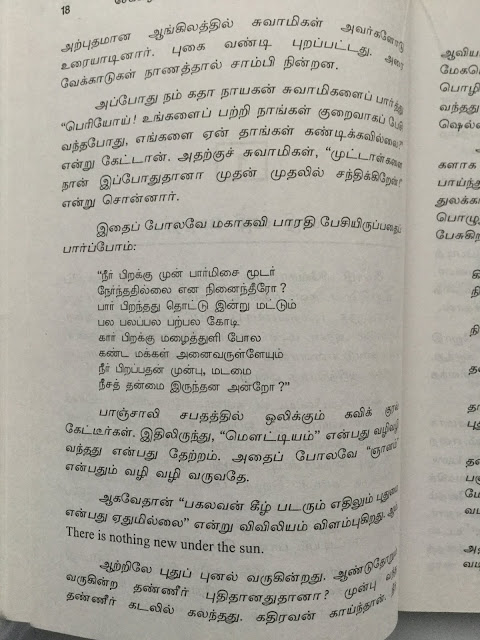 18
அற்புதமான ஆங்கிலத்தில் சுவாமிகள் அவர்களோடு
உரையாடினார். புகை வண்டி புறப்பட்டது. அரை
வேக்காடுகள் நாணத்தால் சாம்பி நின்றன.
அப்போது நம் கதா நாயகன் சுவாமிகளைப் பார்த்து
“பெரியோய்! உங்களைப் பற்றி நாங்கள் குறைவாகப் பேசி
வந்தபோது, எங்களை ஏன் தாங்கள் கண்டிக்கவில்லை?
என்று கேட்டான். அதற்குச் சுவாமிகள், “முட்டாள்களை
நான் இப்போதுதானா முதன் முதலில் சந்திக்கிறேன்?
என்று சொன்னார்.
இதைப் போலவே மகாகவி பாரதி பேசியிருப்பதைப்
பார்ப்போம்:
“நீர் பிறக்கு முன் பார்மிசை மூடர்
நேர்ந்ததில்லை என நினைந்தீரோ?
பார் பிறந்தது தொட்டு இன்று மட்டும்
பல பலப்பல பற்பல கோடி
கார் பிறக்கு மழைத்துளி போல
கண்ட மக்கள் அனைவருள்ளேயும்
நீர் பிறப்பதன் முன்பு, மடமை
நீசத் தன்மை இருந்தன அன்றோ?”
பாஞ்சாலி சபதத்தில் ஒலிக்கும் கவிக் குரல்
கேட்டீர்கள். இதிலிருந்து, “மௌட்டியம்” என்பது வழிவழி
வந்தது என்பது தேற்றம். அதைப் போலவே “ஞானம்”
என்பதும் வழி வழி வருவதே.
ஆகவேதான் “பகலவன் கீழ் படரும் எதிலும் புதுமை
என்பது ஏதுமில்லை” என்று விவிலியம் விளம்புகிறது.
There is nothing new under the sun.
ஆற்றிலே புதுப் புனல் வருகின்றது. ஆண்டுதோறும்
வருகின்ற தண்ணீர் புதிதானதுதானா? முன்பு வந்த
தண்ணீர் கடலில் கலந்தது. கதிரவன் காய்ந்தான்.